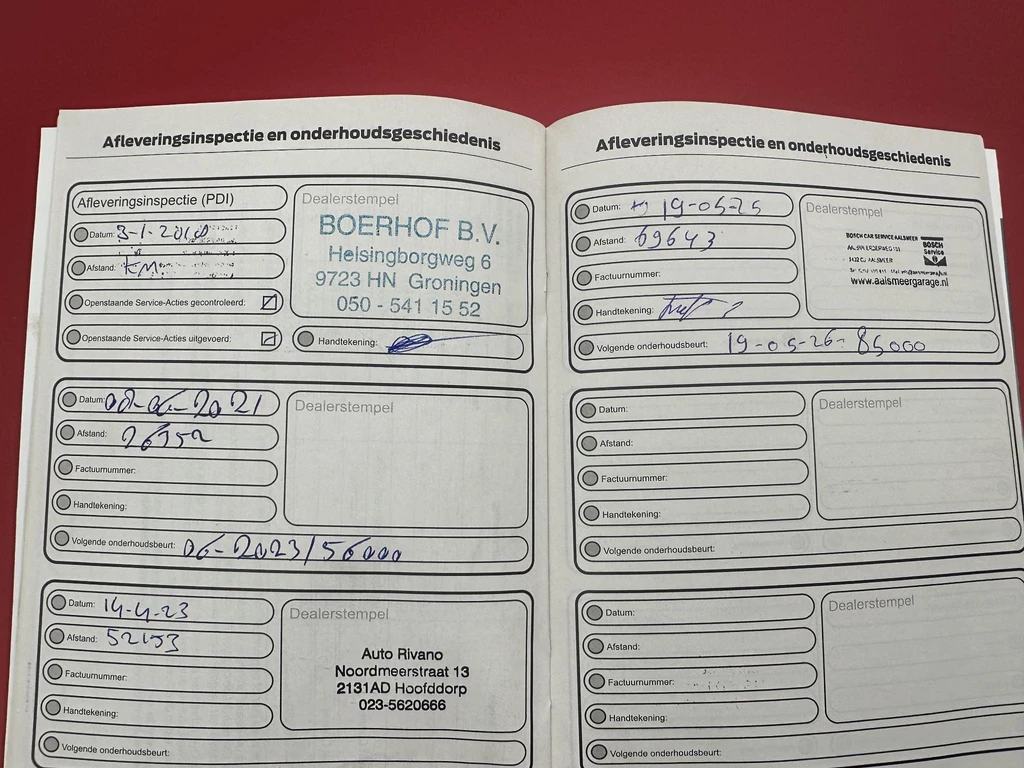 Afleveringsinspectie en onderhoudsgeschiedenis
Afleveringsinspectie (PDI)
Datum: 3-1-2018
Afstand: KM
Openstaande Service-Acties gecontroleerd:
Openstaande Service-Acties uitgevoerd:
Dealerstempel
BOERHOF B.V.
Helsingborgweg 6
9723 HN Groningen
050 - 541 15 52
Handtekening:
Datum: 08-06-2021
Afstand: 26352
Factuurnummer:
Handtekening:
Volgende onderhoudsbeurt: 06-2023/56000
Dealerstempel
Datum: 14-4-23
Afstand: 52153
Factuurnummer:
Handtekening:
Volgende onderhoudsbeurt:
Dealerstempel
Auto Rivano
Noordmeerstraat 13
2131AD Hoofddorp
023-5620666
Afleveringsinspectie en onderhoudsgeschiedenis
Datum: 19-05-25
Afstand: 69643
Factuurnummer:
Handtekening:
Volgende onderhoudsbeurt: 19-05-26- 85000
Dealerstempel
BOSCH CAR SERVICE AALSMEER
1432 CJ AALSMEER
www.aalsmeergarage.nl
BOSCH
Service
Datum:
Afstand:
Factuurnummer:
Handtekening:
Volgende onderhoudsbeurt:
Dealerstempel
Datum:
Afstand:
Factuurnummer:
Handtekening:
Volgende onderhoudsbeurt:
Dealerstempel